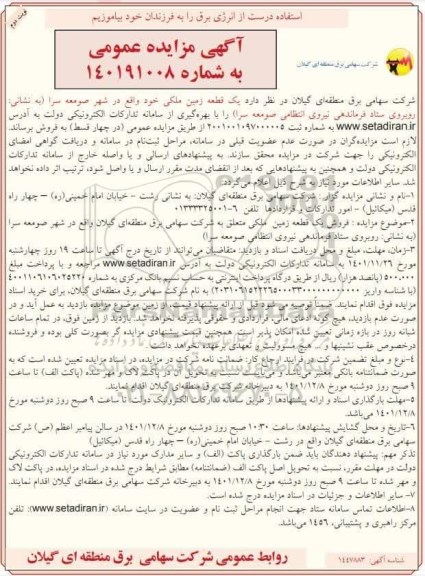 استفاده درست از انرژی برق را به فرزندان خود بیاموزیم
نوبت دوم
آگهی مزایده عمومی
به شماره ۱۴۰۱۹۱۰۰۸
شرکت سهامی برق منطقه‌ای گیلان
شرکت سهامی برق منطقه‌ای گیلان در نظر دارد یک قطعه زمین ملکی خود واقع در شهر صومعه سرا (به نشانی:
روبروی ستاد فرماندهی نیروی انتظامی صومعه سرا) را با بهره‌گیری از سامانه تدارکات الکترونیکی دولت به آدرس
www.setadiran.ir به شماره ثبت از طریق مزایده عمومی (در چهار قسط) به فروش برساند.
لازم است مزایده‌گران در صورت عدم عضویت قبلی در سامانه، مراحل ثبت‌نام در سامانه و دریافت گواهی امضای
الکترونیکی را جهت شرکت در مزایده محقق سازند. به پیشنهادهای ارسالی و یا واصله خارج از سامانه تدارکات
الکترونیکی دولت و همچنین به پیشنهادهایی که بعد از انقضای مدت مقرر ارسال و یا واصل شود، ترتیب اثر داده نخواهد
شد. سایر اطلاعات مورد نیاز به شرح ذیل اعلام می‌گردد:
۱-نام و نشانی مزایده گزار: شرکت سهامی برق منطقه‌ای گیلان، به نشانی رشت - خیابان امام خمینی(ره) - چهار راه
قدس (میکائیل) - امور تدارکات و قراردادها تلفن
۲-موضوع مزایده: فروش یک قطعه زمین ملکی متعلق به شرکت سهامی برق منطقه‌ای گیلان واقع در شهر صومعه سرا
(به نشانی: روبروی ستاد فرماندهی نیروی انتظامی صومعه سرا)
۳-زمان، مهلت، مبلغ و محل دریافت اسناد و بازدید: متقاضیان می‌توانند از تاریخ درج آگهی تا ساعت ۱۹ روز چهارشنبه
مورخ ۱۴۰۱/۱۱/۲۶ به سامانه تدارکات الکترونیکی دولت به آدرس www.setadiran.ir مراجعه و با پرداخت مبلغ
۵۰۰۰۰۰ (پانصد هزار) ریال از طریق درگاه پرداخت اینترنتی به حساب سیبا بانک مرکزی به شماره
(با شناسه واریز به نام شرکت سهامی برق منطقه‌ای گیلان، برای خرید اسناد
مزایده فوق اقدام نمایند. ضمناً توصیه می‌شود قبل از ارائه پیشنهاد قیمت، از زمین موضوع مزایده بازدید به عمل آید و در
صورت عدم بازدید، هیچ گونه ادعای مالی و قراردادی و حقوقی پذیرفته نخواهد شد. بازدید از زمین فوق، در تمام ساعات
شبانه روز در بازه زمانی تعیین شده امکان پذیر است. همچنین قیمت پیشنهادی مزایده گر بصورت کلی بوده و فروشنده
درخصوص عقب نشینی و ... هیچ مسئولیت و تعهدی برعهده نخواهد داشت.
۴-نوع و مبلغ تضمین شرکت در فرایند ارجاع کار: ضمانت نامه شرکت در مزایده، در اسناد مزایده تعیین شده است که به
صورت ضمانتنامه بانکی معتبر می‌باشد و می‌بایست به صورت فیزیکی در پاکت لاک و مهر شده (پاکت الف) تا ساعت
۹ صبح روز دوشنبه مورخ ۱۴۰۱/۱۲/۸ به دبیرخانه شرکت برق منطقه‌ای گیلان اقدام نمایند.
۵-مهلت بارگذاری اسناد و ارائه پیشنهادها از طریق سامانه تدارکات الکترونیک دولت تا ساعت ۹ صبح روز دوشنبه مورخ
۱۴۰۱/۱۲/۸ می‌باشد.
۶-تاریخ و محل گشایش پیشنهادها: ساعت ۱۰:۳۰ صبح روز دوشنبه مورخ ۱۴۰۱/۱۲/۸ در سالن پیامبر اعظم (ص) شرکت
سهامی برق منطقه‌ای گیلان واقع در رشت - خیابان امام خمینی(ره) – چهار راه قدس (میکائیل)
تذکر مهم: پیشنهاد دهندگان باید ضمن بارگذاری پاکت (الف) و سایر مدارک مورد نیاز در سامانه تدارکات الکترونیکی
دولت در مهلت مقرر، نسبت به تحویل اصل پاکت الف (ضمانتنامه) مطابق شرایط درج شده در اسناد مزایده، در پاکت لاک
و مهر شده تا ساعت ۹ صبح روز دوشنبه مورخ ۱۴۰۱/۱۲/۸ به دبیرخانه شرکت سهامی برق منطقه‌ای گیلان اقدام نمایند.
۷- سایر اطلاعات و جزئیات در اسناد مزایده درج شده است.
۸-اطلاعات تماس سامانه ستاد جهت انجام مراحل ثبت نام و عضویت در سایت سامانه (www.setadiran.ir): تلفن
مرکز راهبری و پشتیبانی، ۱۴۵۶ می‌باشد.
شناسه آگهی: ۱۴۴۷۸۸۳
روابط عمومی شرکت سهامی برق منطقه ای گیلان